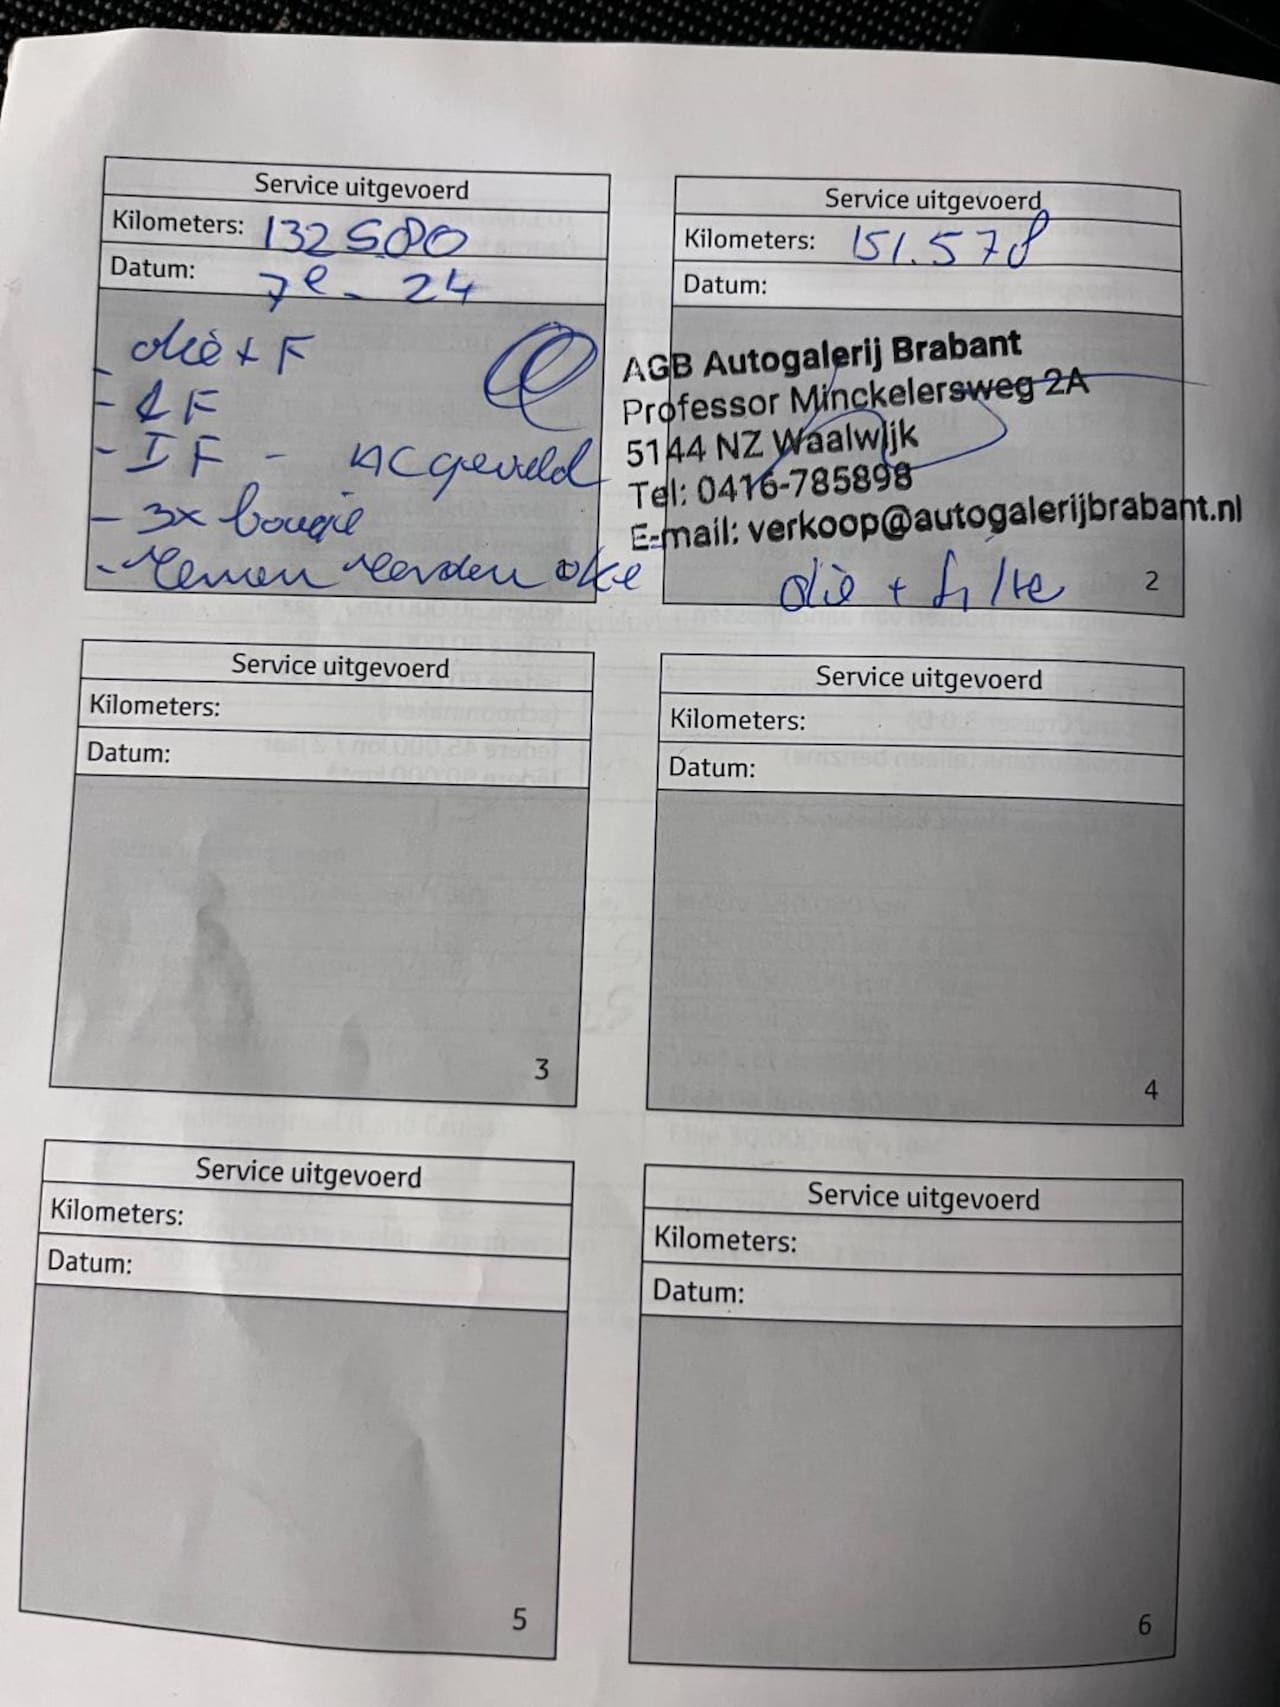 Service uitgevoerd
Kilometers: 132500
Datum: 7e - 24
- olië + F
- LF
- IF - AC gevuld
- 3x bougie
- remmen oke
Service uitgevoerd
Kilometers: 151.578
Datum:
AGB Autogalerij Brabant
Professor Minckelersweg 2A
5144 NZ Waalwijk
Tel: 0416-785898
E-mail: verkoop@autogalerijbrabant.nl
olië + filte
2
Service uitgevoerd
Kilometers:
Datum:
3
Service uitgevoerd
Kilometers:
Datum:
4
Service uitgevoerd
Kilometers:
Datum:
5
Service uitgevoerd
Kilometers:
Datum:
6